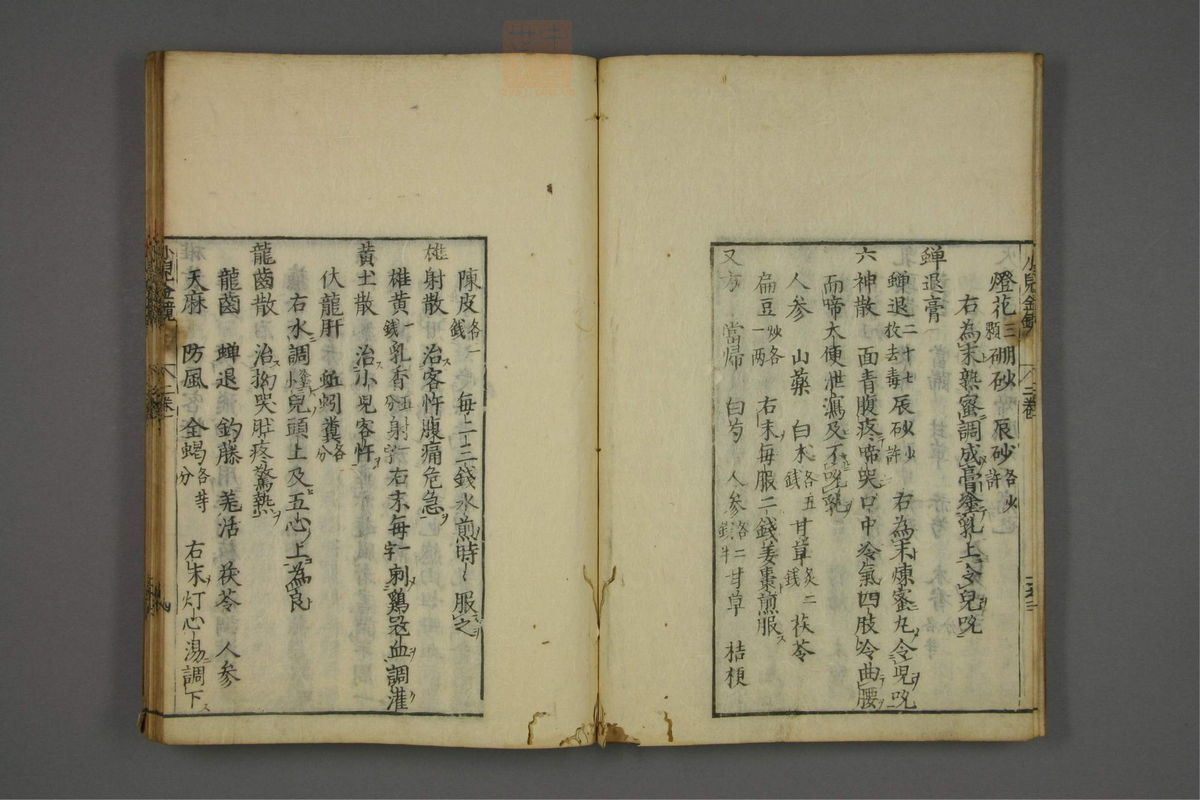 燈花三顆硼砂 辰砂各少許
右為末熟蜜調成膏塗乳上令兒吮
蝉退膏
蝉退二十七枚去毒辰砂少許 右為末煉蜜丸令児吮
六神散 面青腹疼啼哭口中冷氣四肢冷曲腰
而啼大便泄瀉及不吮乳
人参 山藥 白朮各五錢甘草炙二錢茯苓
扁豆炒各一両 右末毎服二錢姜棗煎服
又方 當帰 白芍 人参各二錢半甘草 桔梗
陳皮各一錢 毎二三錢水煎時々服之
雄射散 治客忤腹痛危急
雄黄一錢乳香五分射一字右末毎一字刺鷄冠血調灌
黄土散 治小児客忤
伏龍肝 蚯蚓糞各分
右水調塗小兒頭上及五心上為良
龍齒散 治拗哭肚疼驚熱
龍齒 蝉退 釣藤 羌活 茯苓 人参
天麻 防風 全蝎各等分 右末灯心湯調下
小兒金鏡 二巻